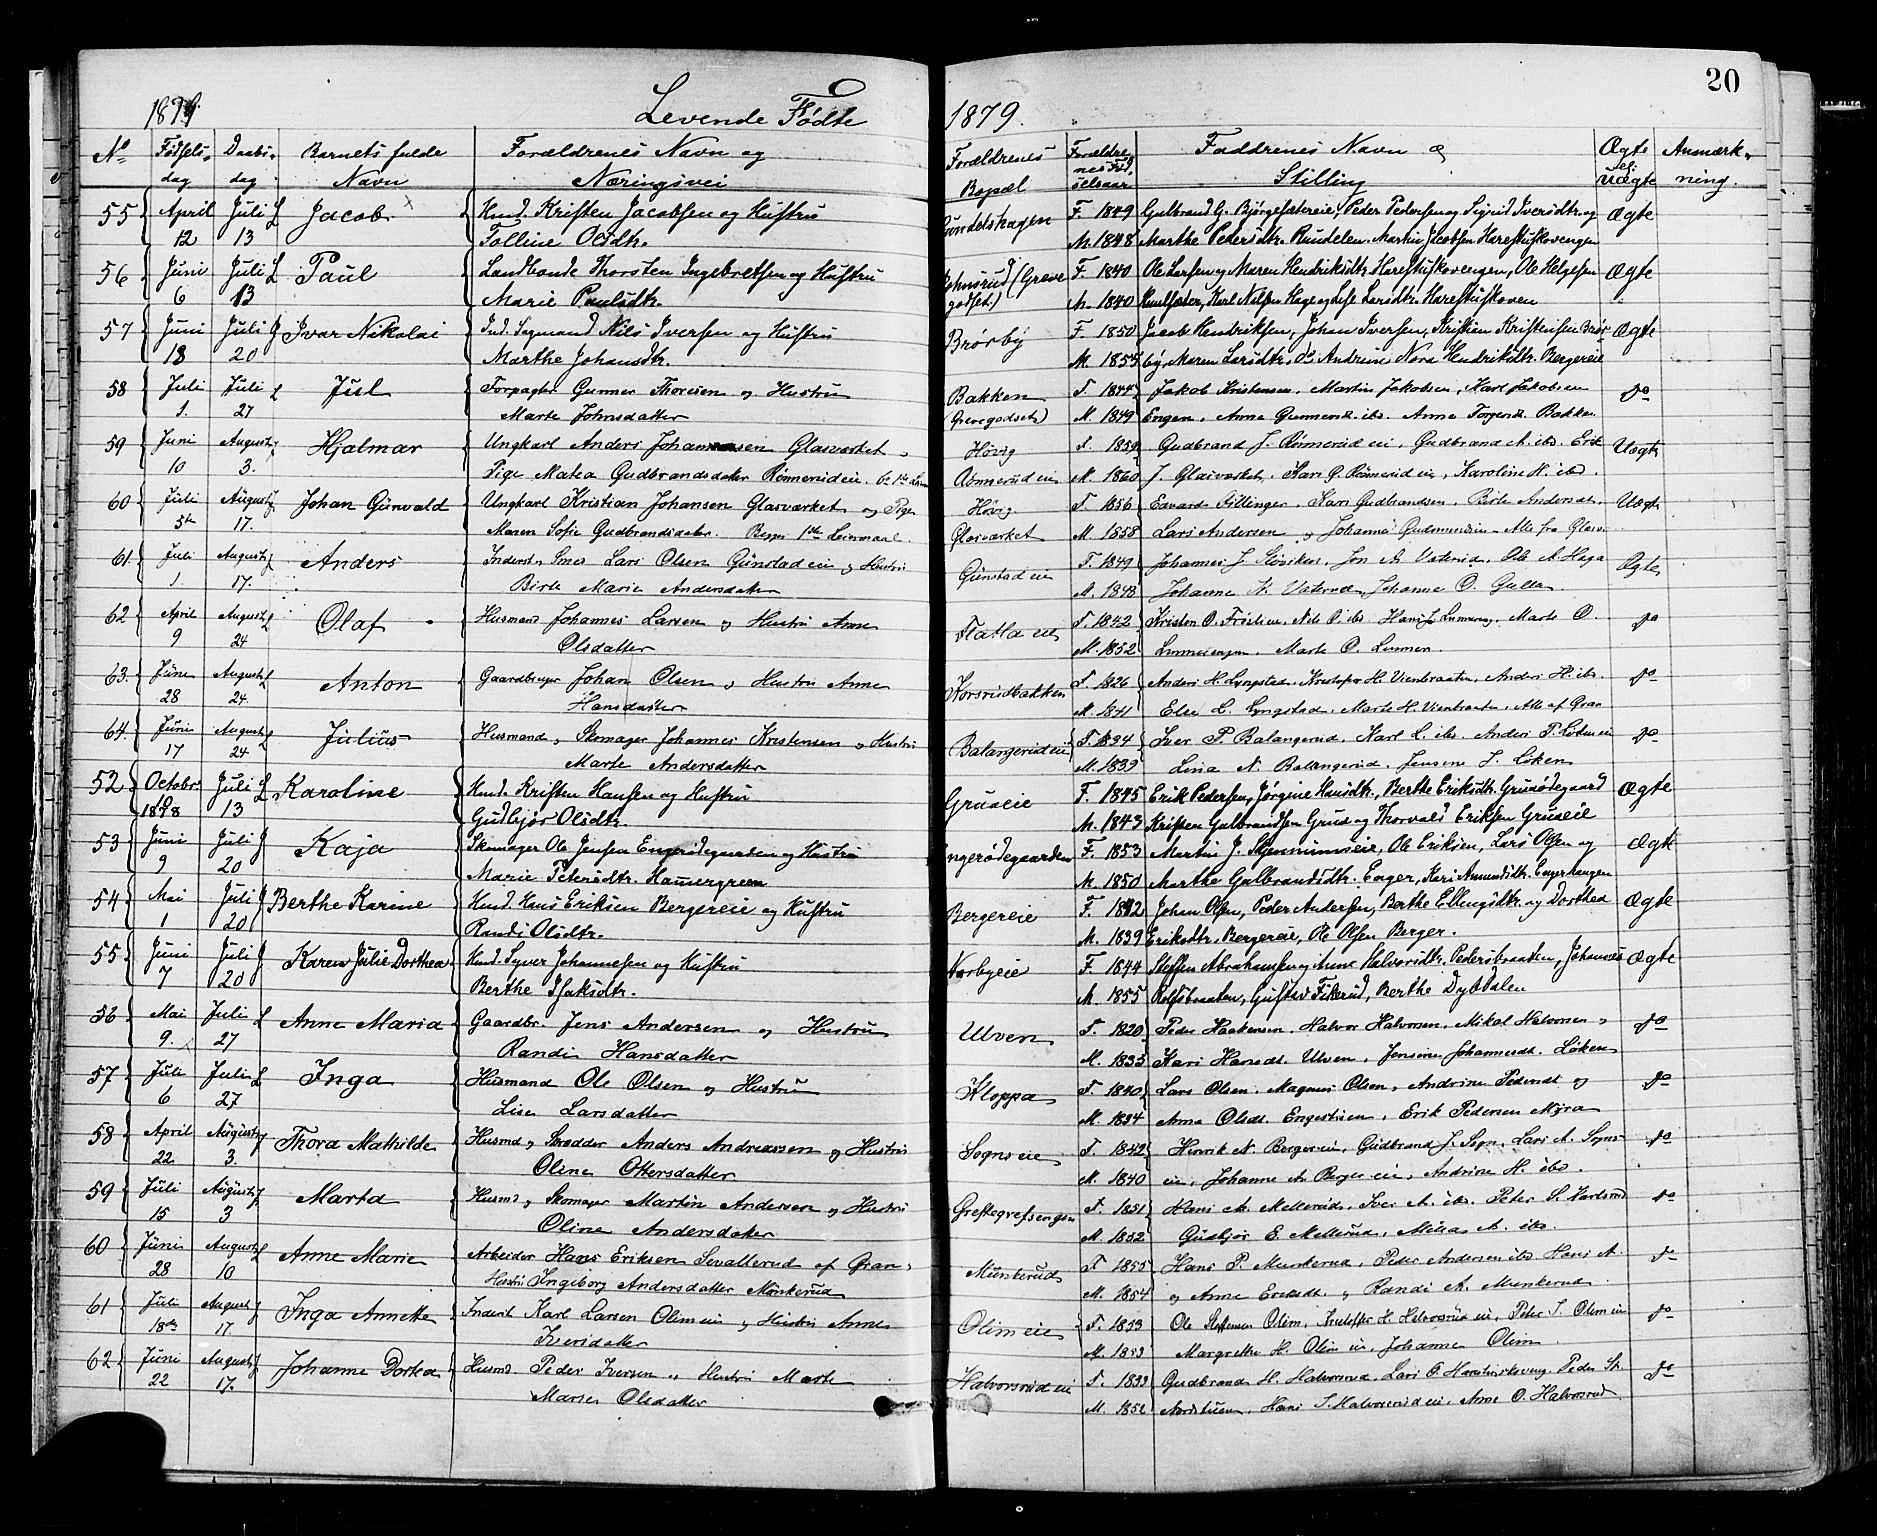 20
1879. Levende Fødte 1879.
No Fødsels- dag Daabs- dag Barnets fulde Navn Forældrenes Navn og Næringsvei Forældrenes Bopæl Forældrenes Fødselsaar Faddrenes Navn og Stilling Ægte el. Uægte Anmærkning.
55 April Juli Jacob Husmd. Kristen Jacobsen og Hustru F. 1849 Gulbrand G. Bjørgesætereie, Peder Pedersen og Sigrid Iversdtr. og Ægte
12 13 Olsdtr. M. 1848 Marthe Pedersdtr. Rundelen. Martin Jacobsen Harestuskovengen
56 Juni Juli Paul Landhande Thorsten Ingebretsen og Hustru F. 1840 Ole Larsen og Maren Hendriksdtr. Harestuskovengen, Ole Helgesen Ægte
6 13 Marie Paulsdtr. godset) M. 1840 Karl Nilsen Hage og Lise Larsdtr. Harestuskoven
57 Juni Juli Ivar Nikolai Ind. Sagmand Nils Iversen og Hustru Brørby F. 1850 Jacob Hendriksen, Johan Iversen, Kristian Kristensen Brør- Ægte
18 20 Marthe Johansdtr. M. 1855 by, Maren Larsdtr. do Andrine Nora Hendriksdtr. Bergereie
58 Juli Juli Jul Forpagter Gunner Thoresen og Hustru Bakken F. 1844 Jakob Kristensen, Martin Jakobsen, Karl Jakobsen do
1. 27 Marte Johnsdatter (Grevegodset) M. 1849 Engen, Anne Gunnersd. ibs. Anne Torgersd. Bakken
59 Juni August Hjalmar Ungkarl Anders Johannesen Glasværket Høvig F. 1859 Gudbrand J. Rønnerud eie, Gudbrand A. ibs. Erik Uægte
10 3. Pige Matea Gudbrandsdatter Rønnerudeie. M. 1860 J. Glasværket, Kari G. Rønnerud eie, Karoline H. ibs.
60 Juli August Johan Gunvald Ungkarl Kristian Johansen Glasværket og Pige Høvig F. 1856 Edvard Gillinger, Lars Gudbrandsen, Birte Andersdt. Uægte
5te 17. Maren Sofie Gudbrandsdatter. Begges 1ste Leiermaal. Glasværket M. 1858 Lars Andersen og Johanne Gudmundsen Alle fra Glasv.
61. Juli August Anders Inderst, Smed Lars Olsen Gunstad eie og Hustru Gunstad eie F. 1849 Johannes J. Stoviken, Jon A. Vaterud, Ole A. Haga Ægte
1. 17. Birte Marie Andersdatter M. 1848 Johanne H. Vaterud, Johanne O. Gulla
62 April August Olaf Husmand Johannes Larsen og Hustru Anne Flatla eie F. 1842 Kristen O. Frøslieie, Nils O. ibs Hans L. Lunneeng, Marte O. do
9 24 Olsdatter M. 1852 Lunneengen, Marte O. Lunnen.
63. Juni August Anton Gaardbruger Johan Olsen og Hustru Anne Korsrudbakken F. 1826 Anders H. Lyngstad, Kristofer H. Vienbraaten, Anders H. ibs. do
28 24. Hansdatter M. 1841 Else L. Lyngstad, Marte H. Vienbraaten, Alle af Gran
64. Juni August Julius Husmand, Skomager Johannes Kristensen og Hustru Balangerud eie F. 1834 Iver P. Balangerud. Karl L. ibs. Anders P. Løken eie do
17 24 Marte Andersdatter M. 1839 Lina N. Balangerud, Jensine J. Løken
52 Octobr Juli Karoline Husmd. Kristen Hansen og Hustru Gruseie F. 1845 Erik Pedersen, Jørgine Hansdtr., Berthe Eriksdtr. Grusødegaard Ægte
1878 13 Gudbjør Olsdtr. M. 1843 Kristen Gulbrandsen Grus og Thorvald Eriksen Gruseie
53 Juni Juli Kaja Skomager Ole Jensen Engerødegaarden og Hustru ngerødegaarden F. 1853 Martin J. Skjenninseie, Ole Eriksen, Lars Olsen og Ægte
9 20 Marie Petersdtr. Hammergreen M. 1850 Marthe Gulbrandsdtr. Enger, Kari Amundsdtr. Engerhaugen
54 Mai Juli Berthe Karine Husmd. Hans Eriksen Bergereie og Hustru Bergereie F. 1842 Johan Olsen, Peder Andersen, Berthe Ellingsdtr. og Dorthea Ægte
1 20 Randi Olsdtr. M. 1839 Eriksdtr. Bergereie, Ole Olsen Berger.
55 Juni Juli Karen Julie Dorthea Husmd. Syver Johannesen og Hustru Norbyeie F. 1844 Steffen Abrahamsen og Anne Halvorsdtr. Pedersbraaten, Johannes Ægte
7 20 Berthe Isaksdtr. M. 1855 Rolfsbraaten, Gustav Fikerud, Berthe Dybdalen
56 Mai Juli Anne Maria Gaardbr. Jens Andersen og Hustru Ulven F. 1820 Peder Haakensen, Halvor Halvorsen, Mikal Halvorsen og do
9. 27 Randi Hansdatter M. 1835 Kari Hansdt. Ulven, Jensine Johannesdt. Løken
57 Juli Juli Inga Husmand Ole Olsen og Hustru Kloppa F. 1840 Lars Olsen, Magnus Olsen, Andrine Pedersdt og do
6 27 Lise Larsdatter M. 1834 Anne Olsdt. Engestuen, Erik Pedersen Myra
58 April August Thora Mathilde Husmd og Skrædder Anders Andreassen og Hustru Sogns eie F. 1842 Henrik N. Bergereie, Gudbrand J. Sogn, Lars A. Sogns- do
22 3. Oline Ottersdatter M. 1840 eie, Johanne A. Berger eie, Andrine H. ibs.
59 Juli August Marta Husmd og Skomager Martin Andersen og Hustru Greftegrefsengen F. 1851 Hans A. Mellerud, Iver A. ibs. Peter S. do
15 3 Oline Andersdatter M. 1852 Gudbjør E. Mellerud, Milla A. ibs.
60 Juni August Anne Marie Arbeider Hans Eriksen Sevallerud af Gran, Munkerud F. 1855 Hans P. Munkerud, Peder Andersen ibs Hans A. do
28 10 Hustru Ingeborg Andersdatter Munkerud M. 1854 og Anne Eriksdt. og Randi A. Munkerud
61 Juli August Inga Annette Inderst Karl Larsen Olim eie og Hustru Anne Olim eie F. 1853 Ole Steffensen Olim, Kristoffer H. Halvorsrud eie, Peter I. Olim eie do
18de 17. Iversdatter M. 1853 Margrethe H. Olim eie, Johanne Olim
62 Juni August Johanne Dortea Husmd. Peder Iversen og Hustru Marte Halvorsrud eie F. 1833 Gudbrand H. Halvorsrud, Lars O. Harestuskoveng, Peder St. do
22 17. Marie Olsdatter M. 1852 Nordstuen, Hans I. Halvorsrud eie, Anne O. Halvorsrud